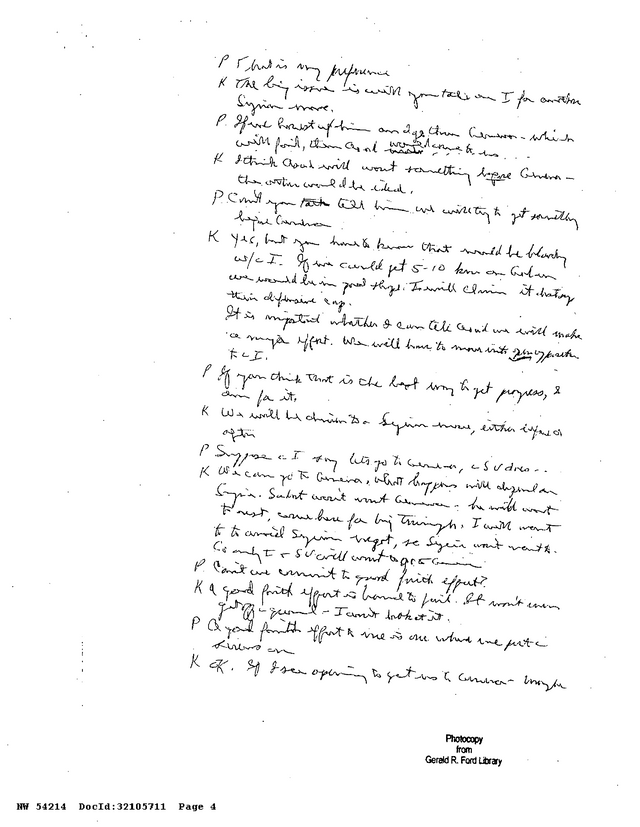 P That is my preference
K The big issue is will you take on I for another
Syrian move.
P. If we hoist up him and go then Geneva - which
will fail, then Asad would come to us . . .
K I think Asad will want something before Geneva –
the other would be ideal.
P Can't you tell him we will try to get something
before Geneva
K Yes, but you have to know that would be bloody
w/ I. If we could get 5-10 km on Golan
we would be in good shape. I will claim it
their defensive cap.
It is important whether I can tell Asad we will make
a major effort. We will have to move into opposition
to I.
P If you think that is the best way to get progress, I
am for it.
K We will be driven to a Syrian move, either before or
after
P Suppose I say lets go to Geneva, SU does . .
K We can go to Geneva, what happens will depend on
Syria. Sadat won't want Geneva - he will want
to rest, come here for big triumph. I will want
to avoid Syrian negot, so Syria won't want to.
So only I + SU will want to go to Geneva
P Can't we commit to good faith effort?
K A good faith effort is bound to fail. It won't even
get off ground – I won't look at it.
P A good faith effort to me is one where we put
screws on
K OK. If I see opening to get us to Geneva – maybe
Photocopy
from
Gerald R. Ford Library
NW 54214 DocId:32105711 Page 4